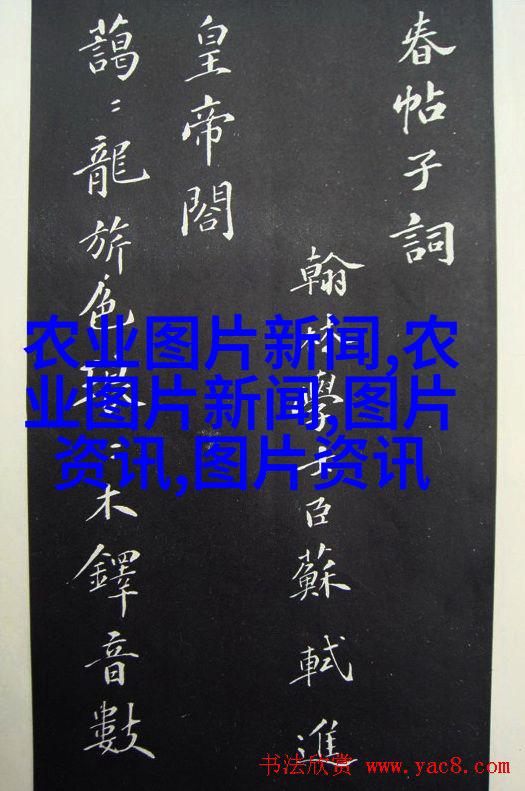 春帖子詞
翰林學士臣蘇軾進
皇帝閤
藹〻龍旂色琅〻木鐸音數
农业图片新闻,农
业图片新闻,图片
资讯,图片资讯
书法欣赏 www.yac8.com